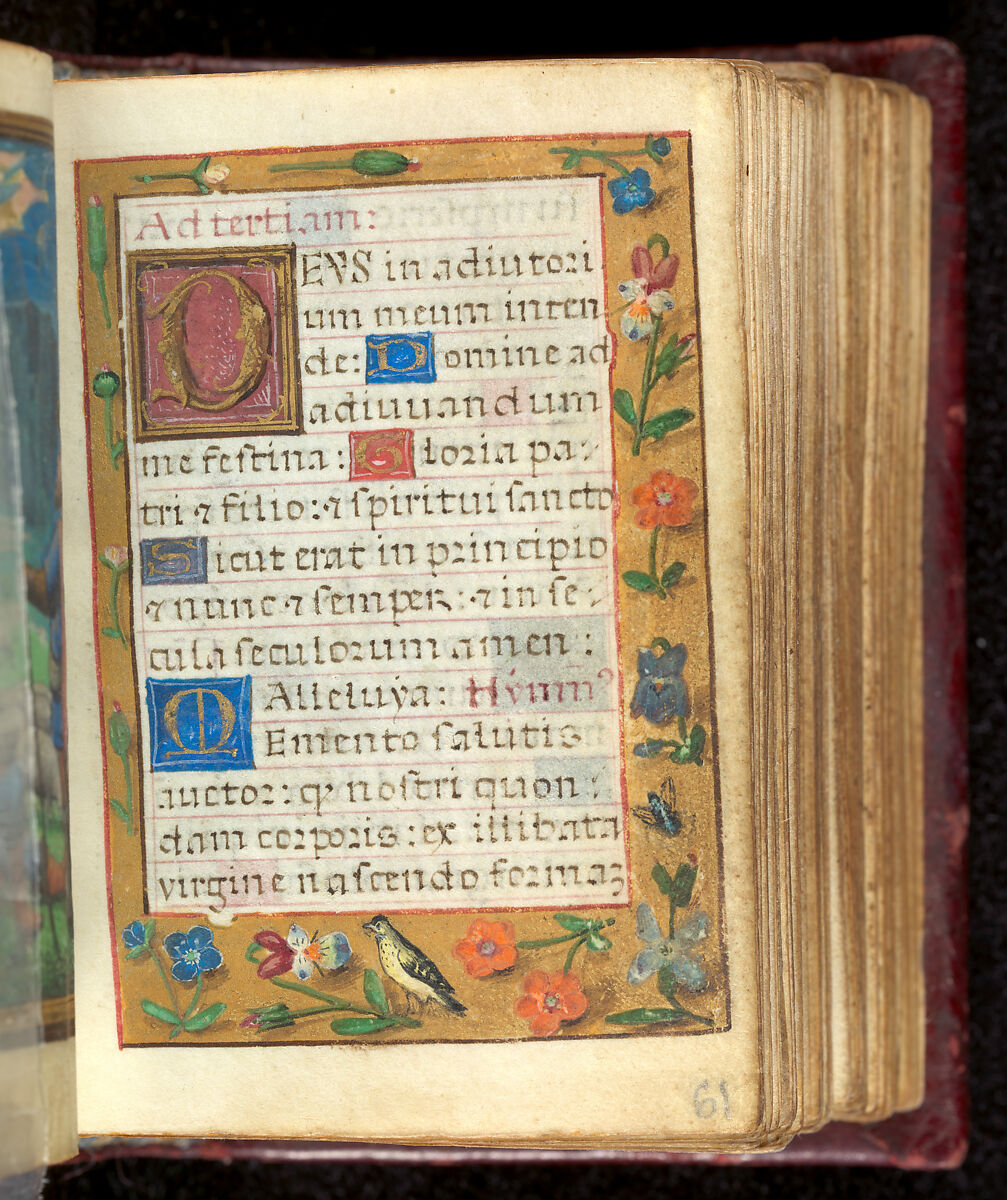 Ad tertiam:
DEVS in adiutori
um meum inten
de: Domine ad
adiuuandum
me festina: Gloria pa⸗
tri ⁊ filio: ⁊ spiritui sancto
Sicut erat in principio
⁊ nunc ⁊ semper: ⁊ in se⸗
cula seculorum amen:
Alleluya: Hymnꝰ
MEmento salutis
auctor: qꝫ nostri quon⸗
dam corporis: ex illibata
virgine nascendo formaꝫ
61